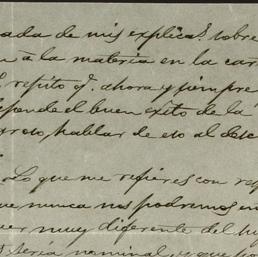 ada de mis explicas. sobre
n á la materia en la car
repito q. ahora y siempre
epende el buen éxito de la
hablar de eso al dete
Lo que me refieres con res
ue nunca nos podremos en
er muy diferente del su
sería nominal, y que por